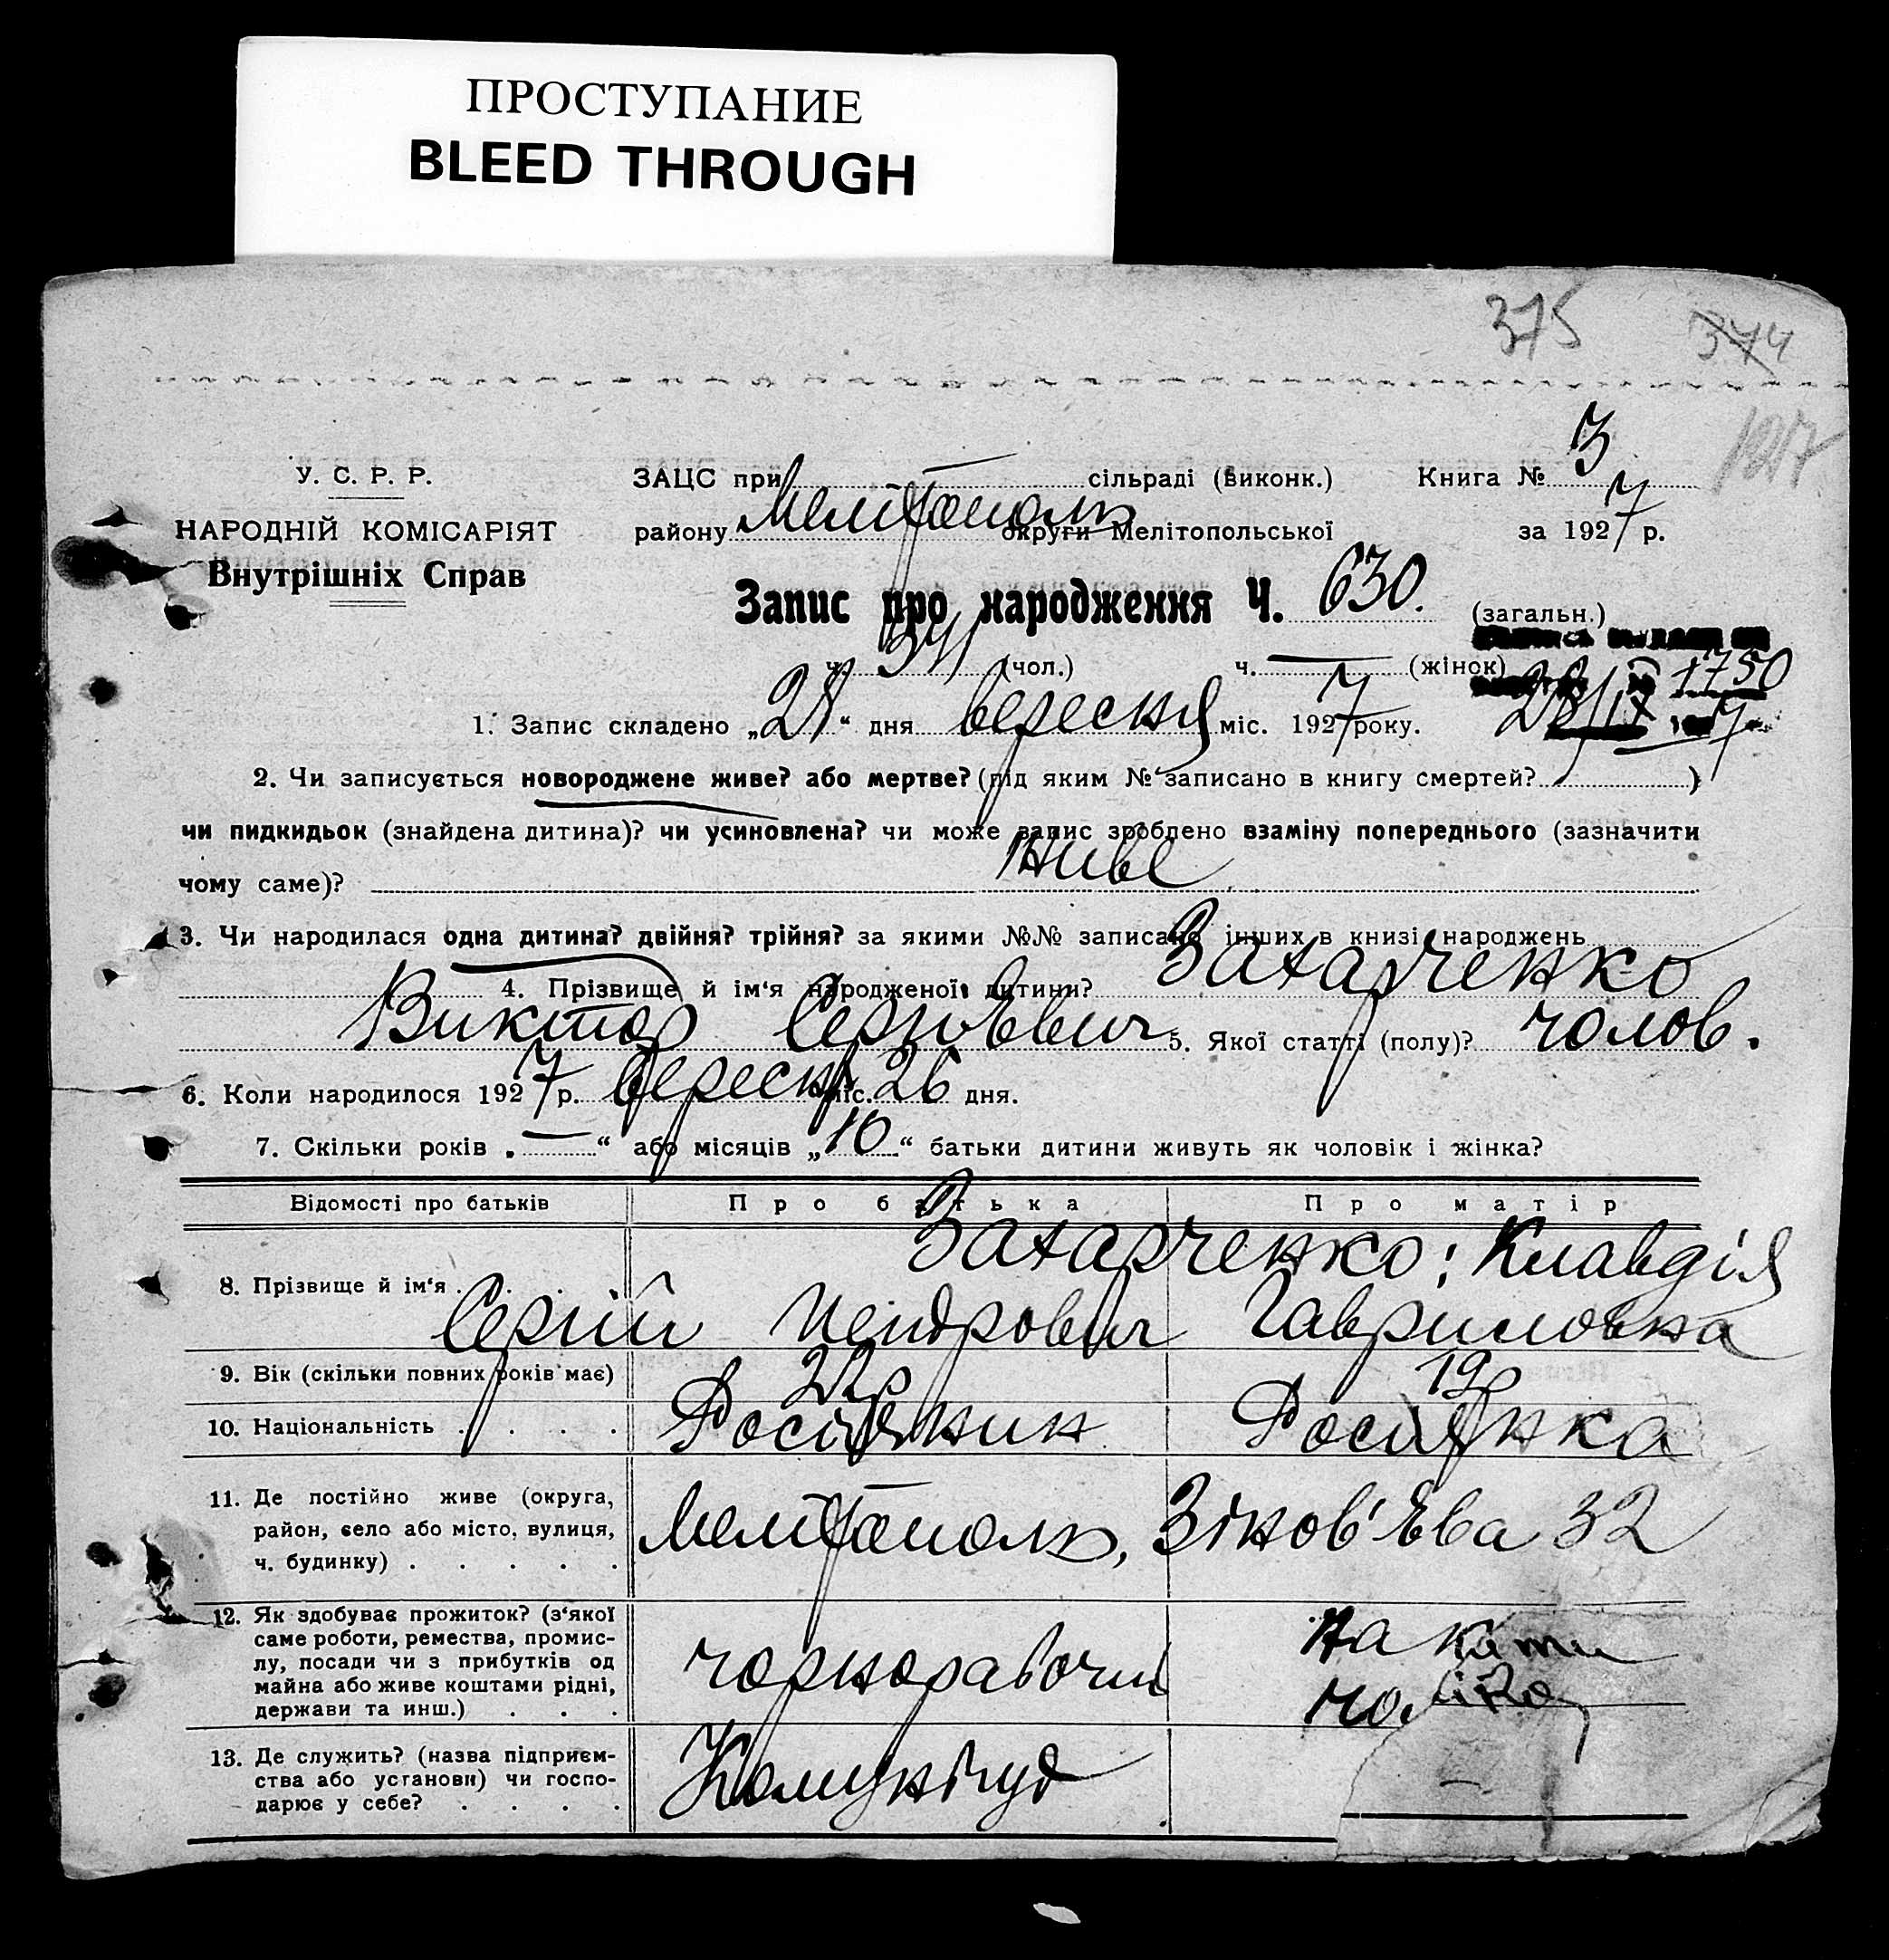 ПРОСТУПАНИЕ
BLEED THROUGH
375 374
127
У. С. Р. Р. ЗАЦС при сільраді (виконк.) Книга № 3
НАРОДНІЙ КОМІСАРІЯТ району Мелітополь округи Мелітопольської за 1927 р.
Внутрішніх Справ
Запис про народження Ч. 630. (загальн.)
ч. (чол.) ч. — (жінок) 1750
1. Запис складено „28“ дня вересня міс. 1927 року. 28/IX
2. Чи записується новороджене живе? або мертве? (під яким № записано в книгу смертей? )
чи пидкидьок (знайдена дитина)? чи усиновлена? чи може запис зроблено взаміну попереднього (зазначити
чому саме)? живе
3. Чи народилася одна дитина? двійня? трійня? за якими №№ записано інших в книзі народжень
4. Прізвище й ім‘я народженої дитини? Захарченко
Виктор Сергієвич 5. Якої статті (полу)? чолов.
6. Коли народилося 1927 р. вересня міс. 26 дня.
7. Скільки років „—“ або місяців „10“ батьки дитини живуть як чоловік і жінка?
Відомості про батьків Про батька Про матір
8. Прізвище й ім‘я . . . Захарченко; Клавдія
Сергій Петрович Гавриловна
9. Вік (скільки повних років має) 22р 19р
10. Національність . . . . Росіянин Росиянка
11. Де постійно живе (округа,
район, село або місто, вулиця,
ч. будинку) . . . . . Мелітополь, Зінов'єва 32
12. Як здобуває прожиток? (з‘якої
саме роботи, ремества, промис-
лу, посади чи з прибутків од
майна або живе коштами рідні,
держави та инш.) . . . чорнорабочий на
13. Де служить? (назва підприєм-
ства або установи) чи госпо-
дарює у себе? . . . . —